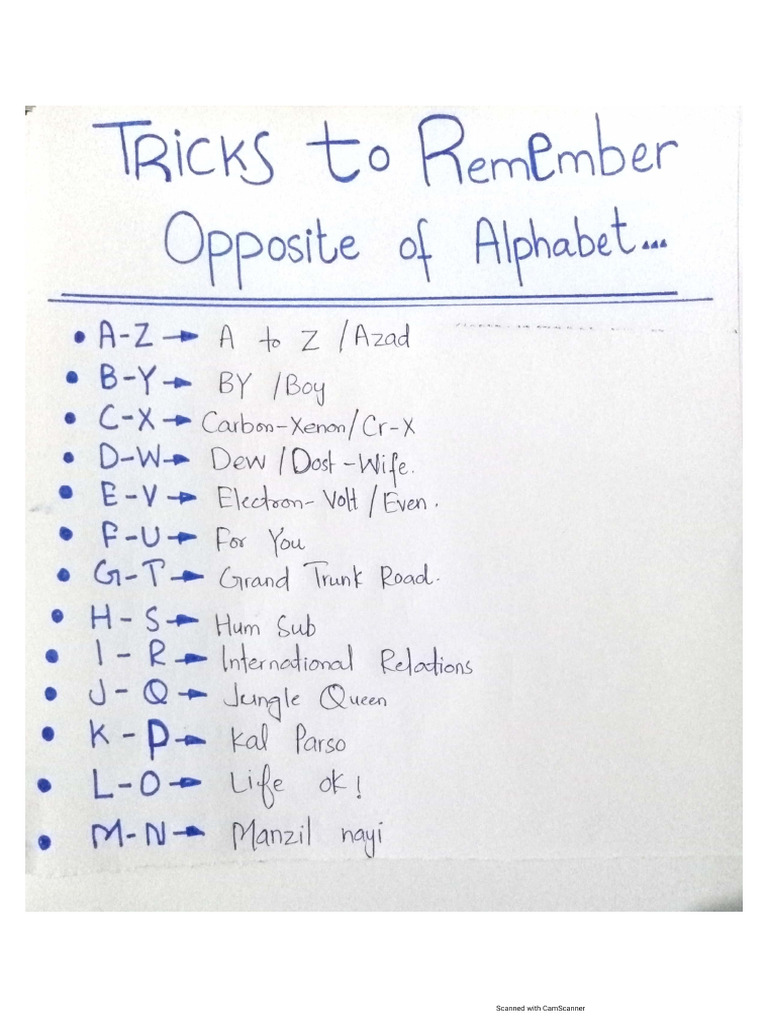 TRICKS to Remember
Opposite of Alphabet...
• A-Z → A to Z /Azad
• B-Y → BY /Boy
• C-X → Carbon-Xenon/Cr-X
• D-W → Dew /Dost-Wife.
• E-V → Electron-Volt /Even.
• F-U → For You
• G-T → Grand Trunk Road.
• H-S → Hum Sub
• I-R → International Relations
• J-Q → Jungle Queen
• K-P → Kal Parso
• L-O → Life ok!
• M-N → Manzil nayi
Scanned with CamScanner